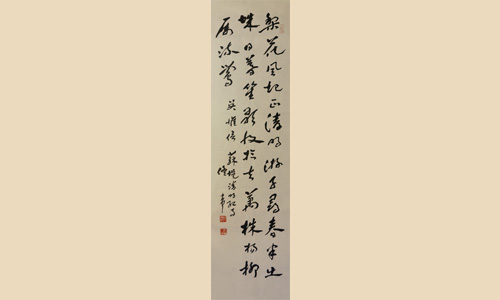 梨花風起正清明游子尋春半出
城日暮笙歌收拾去萬株楊柳
屬流鶯 吳惟信 蘇堤清明即事